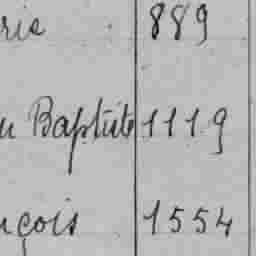 ris 889
u Baptiste 1119
nçois 1554